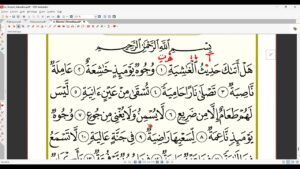 بِسْمِ اللَّهِ الرَّحْمَٰنِ الرَّحِيمِ
هَلْ أَتَىٰكَ حَدِيثُ ٱلْغَٰشِيَةِ ١ وُجُوهٌ يَوْمَئِذٍ خَٰشِعَةٌ ٢ عَامِلَةٌ
نَّاصِبَةٌ ٣ تَصْلَىٰ نَارًا حَامِيَةً ٤ تُسْقَىٰ مِنْ عَيْنٍ ءَانِيَةٍ ٥ لَّيْسَ
لَهُمْ طَعَامٌ إِلَّا مِن ضَرِيعٍ ٦ لَّا يُسْمِنُ وَلَا يُغْنِى مِن جُوعٍ ٧ وُجُوهٌ
يَوْمَئِذٍ نَّاعِمَةٌ ٨ لِّسَعْيِهَا رَاضِيَةٌ ٩ فِى جَنَّةٍ عَالِيَةٍ ١٠ لَّا تَسْمَعُ